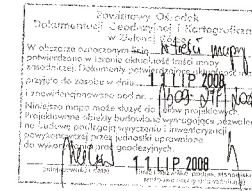 Powiatowy Ośrodek
Dokumentacji Geodezyjnej i Kartograficznej
w Zielonej Górze
W obszarze oznaczonym linią w treści mapy
potwierdzono w terenie aktualność treści mapy
zasadniczej. Dokumenty potwierdzające aktualność
przyjęto do zasobu w dniu 11 LIP 2008
i zewidencjonowano pod nr
Niniejsza mapa może służyć do celów projektowych.
Projektowane obiekty budowlane wymagające pozwolenia
na budowę podlegają wytyczeniu i inwentaryzacji
powykonawczej przez jednostki uprawnione
do wykonywania prac geodezyjnych.
11 LIP 2008